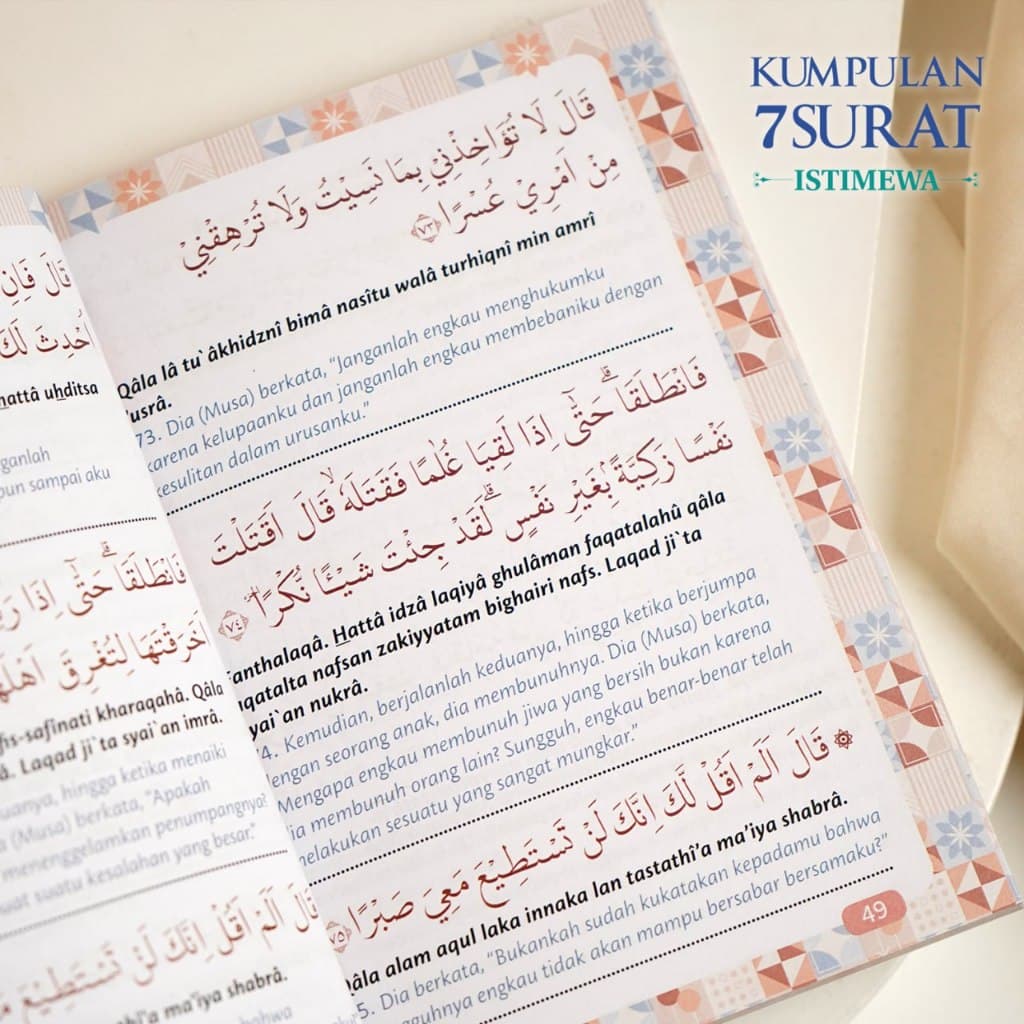 KUMPULAN
7SURAT
ISTIMEWA
قَالَ فَاِنِ
اُحْدِثَ لَكَ
ḥattâ uḥditsa
nganlah
pun sampai aku
فَانْطَلَقَاۗ حَتّٰٓى اِذَا
اَخَرَقْتَهَا لِتُغْرِقَ اَهْلَهَا
fis-safînati kharaqahâ. Qâla
Laqad ji`ta syai`an imrâ.
hingga ketika menaiki
(Musa) berkata, "Apakah
menenggelamkan penumpangnya?
suatu kesalahan yang besar."
قَالَ اَلَمْ اَقُلْ اِنَّكَ لَنْ تَسْتَطِيْعَ
ma'iya shabrâ.
bahwa
قَالَ لَا تُؤَاخِذْنِيْ بِمَا نَسِيْتُ وَلَا تُرْهِقْنِيْ
مِنْ اَمْرِيْ عُسْرًا ٧٣
Qâla lâ tu`âkhidznî bimâ nasîtu walâ turhiqnî min amrî
'usrâ.
73. Dia (Musa) berkata, "Janganlah engkau menghukumku
karena kelupaanku dan janganlah engkau membebaniku dengan
kesulitan dalam urusanku."
فَانْطَلَقَاۗ حَتّٰٓى اِذَا لَقِيَا غُلٰمًا فَقَتَلَهٗۙ قَالَ اَقَتَلْتَ
نَفْسًا زَكِيَّةًۢ بِغَيْرِ نَفْسٍۗ لَقَدْ جِئْتَ شَيْـًٔا نُّكْرًا ٧٤
Fanthalaqâ. Ḥattâ idzâ laqiyâ ghulâman faqatalahû qâla
aqatalta nafsan zakiyyatam bighairi nafs. Laqad ji`ta
syai`an nukrâ.
74. Kemudian, berjalanlah keduanya, hingga ketika berjumpa
dengan seorang anak, dia membunuhnya. Dia (Musa) berkata,
"Mengapa engkau membunuh jiwa yang bersih bukan karena
dia membunuh orang lain? Sungguh, engkau benar-benar telah
melakukan sesuatu yang sangat mungkar."
۞ قَالَ اَلَمْ اَقُلْ لَّكَ اِنَّكَ لَنْ تَسْتَطِيْعَ مَعِيَ صَبْرًا ٧٥
Qâla alam aqul laka innaka lan tastathî'a ma'iya shabrâ.
75. Dia berkata, "Bukankah sudah kukatakan kepadamu bahwa
sungguhnya engkau tidak akan mampu bersabar bersamaku?"
49